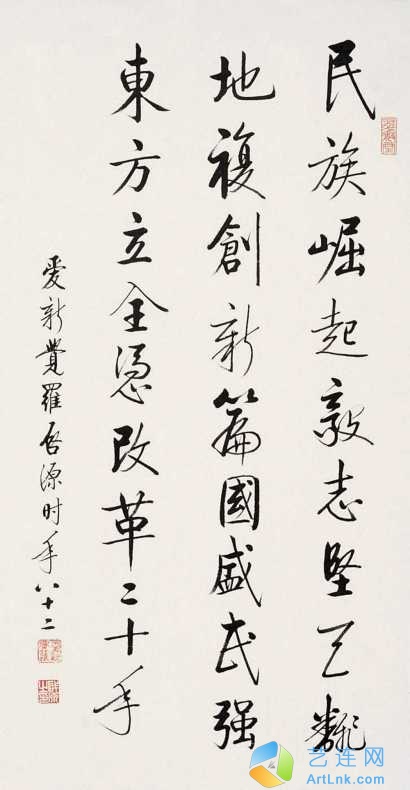 民族崛起毅志堅天翻
地複創新篇國盛民强
東方立全憑改革二十年
愛新覺羅啓源时年八十二
艺连网
ArtLnk.com